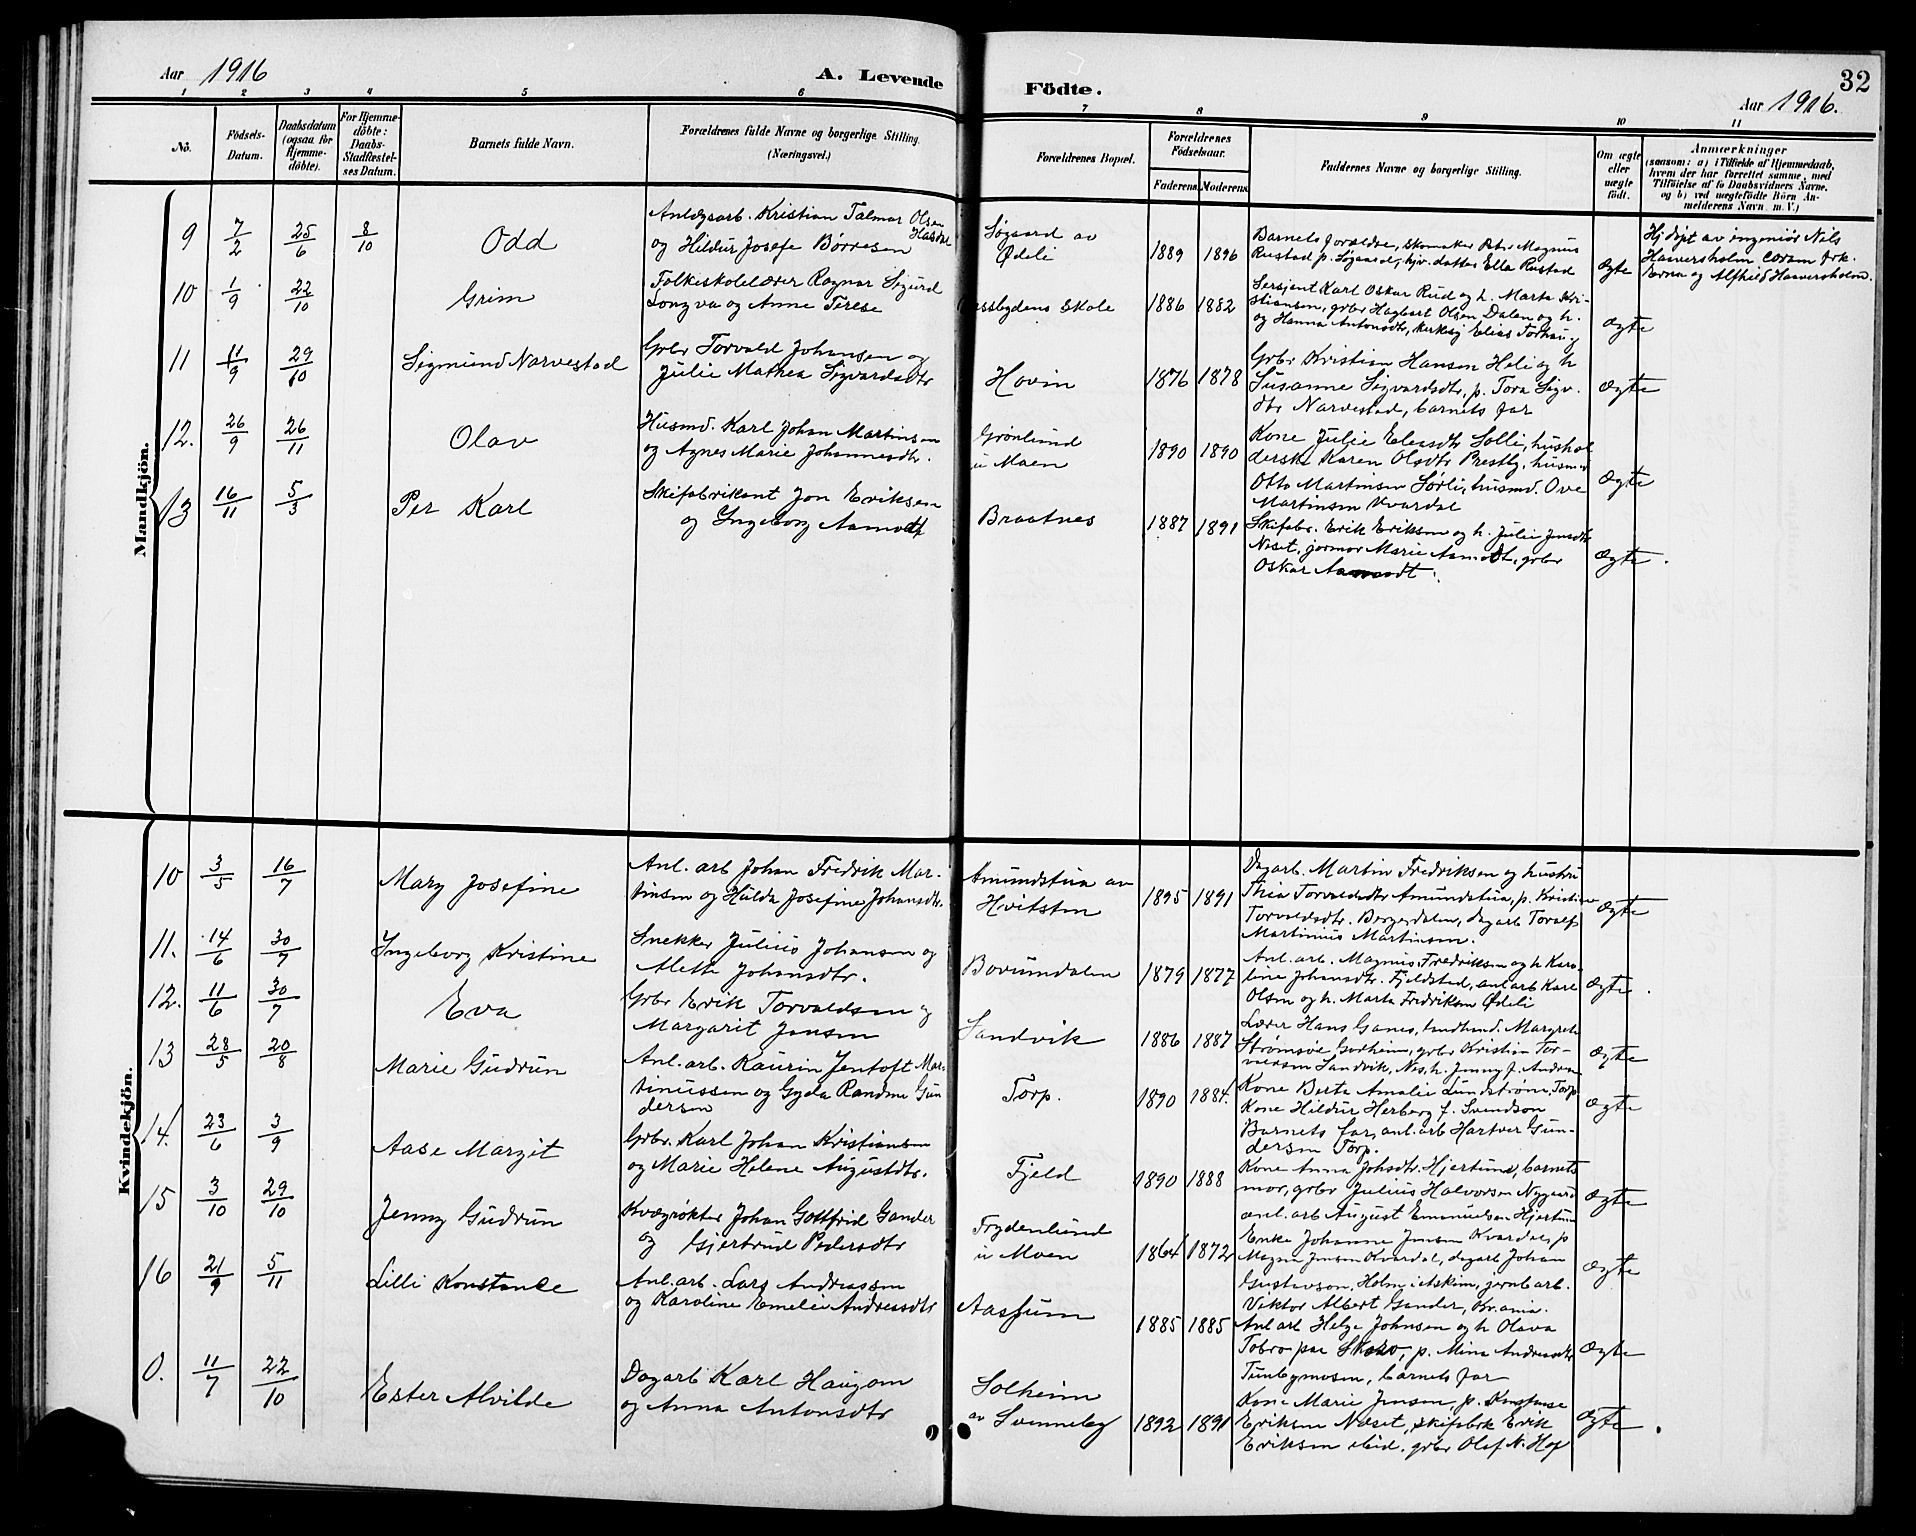 Aar 1916
A. Levende
Födte.
32
Aar 1916.
1 2 3 4 5 6 7 8 9 10 11
No.
Födsels-
Datum.
Daabsdatum
(ogsaa for
Hjemme-
döbte).
For Hjemme-
döbte:
Daabs-
Stadfæstel-
ses Datum.
Barnets fulde Navn.
Forældrenes fulde Navne og borgerlige Stilling
(Næringsvei.)
Forældrenes Bopæl.
Forældrenes
Födselsaar.
Faderens. Moderens.
Faddernes Navne og borgerlige Stilling.
Om ægte
eller
uægte
födt.
Anmærkninger
(saasom: a) i Tilfælde af Hjemmedaab,
hvem der har forrettet samme, med
Tilföielse af to Daabsvidners Navne,
og b) ved uægtefödte Börn An-
melderens Navn m. V.)
Mandkjön.
9 7/2 25/6 8/10 Odd
Anlægsarb. Kristian Talmar Olsen
og Hildur Josefe Børresen
Søgaard av
Ødeli
1889 1896
Barnets forældre, skomaker Peter Magnus
Rustad p. Søgaard, hjv. datter Ella Rustad
Ægte
Hj. døpt av ingeniør Nils
Haaversholm coram frk.
Erna og Alfhild Haaversholm.
10 1/9 22/10 Grim
Folkeskolelærer Ragnar Sigurd
Longva og Anne Terese
Skole
1886 1882
Sersjent Karl Oskar Rud og h. Marta Kri-
stiansen, grbr Hagbart Olsen Dalen og h.
og Hanna Antonsdtr, kirkesg Elias Torhaug
Ægte
11 11/9 29/10 Sigmund Narvestad
Grbr Torvald Johansen og
Julie Mathea Sigvardsdtr
Hovin
1876 1878
Grbr Kristian Hansen Heli og h
Susanne Sigvardsdtr, p. Tora Sigv.
dtr Narvestad, barnets far
Ægte
12. 26/9 26/11 Olav
Husmd. Karl Johan Martinsen
og Agnes Marie Johannesdtr.
Grønlund
u Moen
1890 1890
Kone Julie Eleasdtr Solli, hushol
derske Karen Olsdtr Prestby, husmd
Otto Martinsen Sørli, husmd. Ove
Martinsen Kvardal
Ægte
13 16/11 5/3 Per Karl
Skifabrikant Jon Eriksen
og Ingeborg Aamodt
Braatnes
1887 1891
Skifabr. Erik Eriksen og h. Julie Jensdtr
Neset, jormor Marie Aamodt, grbr
Oskar Aamodt.
Ægte
Kvindekjön.
10 3/5 16/7 Mary Josefine
Anl. arb Johan Fredrik Mar-
tinsen og Hulda Josefine Johansdtr.
Amundstua av
Hvitsten
1895 1891
Dagarb. Martin Fredriksen og hustru
Thea Torvaldsdtr Amundstua, p. Kristine
Torvaldsdtr. Bergerdalen, dagarb Toralf
Martinius Martinsen.
Ægte
11. 14/6 30/7 Ingeborg Kristine
Snekker Julius Johansen og
Alette Johansdtr.
Borumdalen
1879 1877
Anl. arb. Magnus Fredriksen og h Karo-
line Johansdtr. Fjeldstad, anl arb Karl
Olsen og h. Marta Fredriksen Ødeli
Ægte
12. 11/6 30/7 Eva
Grbr Erik Torvaldsen og
Margarit Jensen
Sandvik
1886 1887
Lærer Hans Ganes, landhand. Margrete
Strømsøe Garheim, grbr Kristian Tor-
Sandvik, Nes, h. Jenny f. Andersen
Ægte
13 28/5 20/8 Marie Gudrun
Anl. arb. Kaurin Jentoft Mar-
tinussen og Gyda Randine Gun
dersen
Torp.
1890 1884.
Kone Berte Amalie Lundstrøm, Torp
Kone Hildur Herborg f. Svendson
Barnets far, anl. arb Hartver Gun-
dersen Torp.
Ægte
14. 23/6 3/9 Aase Margit
Grbr. Karl Johan Kristiansen
og Marie Helene Augustdtr.
Fjeld
1890 1888
Kone Anna Johsdtr. Hjertum, barnets
mor, grbr Julius Halvorsen Nygaard
anl. arb August Emanuelsen Hjertum
Ægte
15 3/10 29/10 Jenny Gudrun
Kvægrøkter Johan Gottfrid Gander
og Gjertrud Pedersdtr
Frydenlund
u Moen
1864 1872
Enke Johanne Jensen Kvardal, p
Magna Jensen Kvardal, dagarb Johan
Gustavson, Holm i Askim, jernb arb.
Viktor Albert Gander, Kr.ania.
Ægte
16 21/9 5/11 Lilli Konstanse
Anl. arb. Lars Andreassen
og Karoline Emelie Andreasdtr
Aassum
1885 1885
Anl arb Helge Johnsen og h Olava
Tobro paa Skoro, p. Mina Andreasdtr
Tunbymosen, barnets far
Ægte
0. 11/7 22/10 Ester Alvilde
Dagarb Karl Haugom
og Anna Antonsdtr
Solheim
av Svenneby
1892 1891
Kone Marie Jensen, p. Konstanse
Eriksen Næset, skifabrk Erik
Eriksen ibid, grbr Olaf N. Hof
Ægte